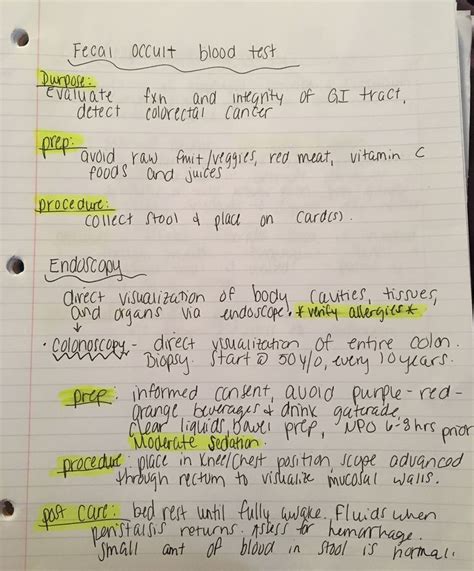 Fecal occult blood test
purpose:
evaluate fxn and integrity of GI tract,
detect colorectal cancer
prep:
avoid raw fruit/veggies, red meat, vitamin C
foods and juices
procedure:
collect stool & place on card(s).
Endoscopy
direct visualization of body cavities, tissues,
and organs via endoscope. *verify allergies*
• Colonoscopy - direct visualization of entire colon.
Biopsy. Start @ 50 y/o, every 10 years.
prep: informed consent, avoid purple-red-
orange beverages & drink gatorade,
clear liquids, bowel prep, NPO 6-8 hrs prior
Moderate sedation.
procedure: place in knee/chest position, scope advanced
through rectum to visualize mucosal walls.
post care: bed rest until fully awake. Fluids when
peristalsis returns. Assess for hemorrhage.
small amt of blood in stool is normal.